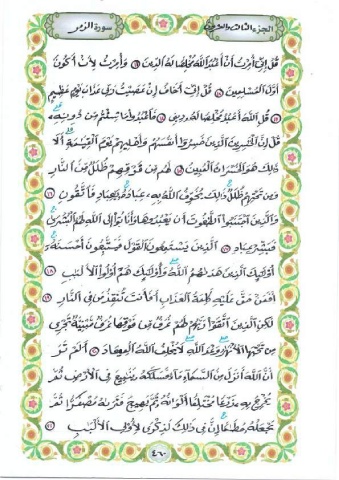 الجزء الثالث والعشرون
سورة الزمر
قُلْ إِنِّي أُمِرْتُ أَنْ أَعْبُدَ اللَّهَ مُخْلِصًا لَهُ الدِّينَ ١١ وَأُمِرْتُ لِأَنْ أَكُونَ
أَوَّلَ الْمُسْلِمِينَ ١٢ قُلْ إِنِّي أَخَافُ إِنْ عَصَيْتُ رَبِّي عَذَابَ يَوْمٍ عَظِيمٍ
١٣ قُلِ اللَّهَ أَعْبُدُ مُخْلِصًا لَهُ دِينِي ١٤ فَاعْبُدُوا مَا شِئْتُمْ مِنْ دُونِهِ
قُلْ إِنَّ الْخَٰسِرِينَ الَّذِينَ خَسِرُوا أَنْفُسَهُمْ وَأَهْلِيهِمْ يَوْمَ الْقِيَٰمَةِ أَلَا
ذَٰلِكَ هُوَ الْخُسْرَانُ الْمُبِينُ ١٥ لَهُمْ مِنْ فَوْقِهِمْ ظُلَلٌ مِنَ النَّارِ
وَمِنْ تَحْتِهِمْ ظُلَلٌ ذَٰلِكَ يُخَوِّفُ اللَّهُ بِهِ عِبَادَهُ يَٰعِبَادِ فَاتَّقُونِ ١٦
وَالَّذِينَ اجْتَنَبُوا الطَّٰغُوتَ أَنْ يَعْبُدُوهَا وَأَنَابُوا إِلَى اللَّهِ لَهُمُ الْبُشْرَىٰ
فَبَشِّرْ عِبَادِ ١٧ الَّذِينَ يَسْتَمِعُونَ الْقَوْلَ فَيَتَّبِعُونَ أَحْسَنَهُ
أُولَٰئِكَ الَّذِينَ هَدَىٰهُمُ اللَّهُ وَأُولَٰئِكَ هُمْ أُولُوا الْأَلْبَٰبِ ١٨
أَفَمَنْ حَقَّ عَلَيْهِ كَلِمَةُ الْعَذَابِ أَفَأَنْتَ تُنْقِذُ مَنْ فِي النَّارِ ١٩
لَٰكِنِ الَّذِينَ اتَّقَوْا رَبَّهُمْ لَهُمْ غُرَفٌ مِنْ فَوْقِهَا غُرَفٌ مَبْنِيَّةٌ تَجْرِي
مِنْ تَحْتِهَا الْأَنْهَٰرُ وَعْدَ اللَّهِ لَا يُخْلِفُ اللَّهُ الْمِيعَادَ ٢٠ أَلَمْ تَرَ
أَنَّ اللَّهَ أَنْزَلَ مِنَ السَّمَاءِ مَاءً فَسَلَكَهُ يَنَٰبِيعَ فِي الْأَرْضِ ثُمَّ
يُخْرِجُ بِهِ زَرْعًا مُخْتَلِفًا أَلْوَانُهُ ثُمَّ يَهِيجُ فَتَرَىٰهُ مُصْفَرًّا ثُمَّ
يَجْعَلُهُ حُطَٰمًا إِنَّ فِي ذَٰلِكَ لَذِكْرَىٰ لِأُولِي الْأَلْبَٰبِ ٢١
٤٦٠